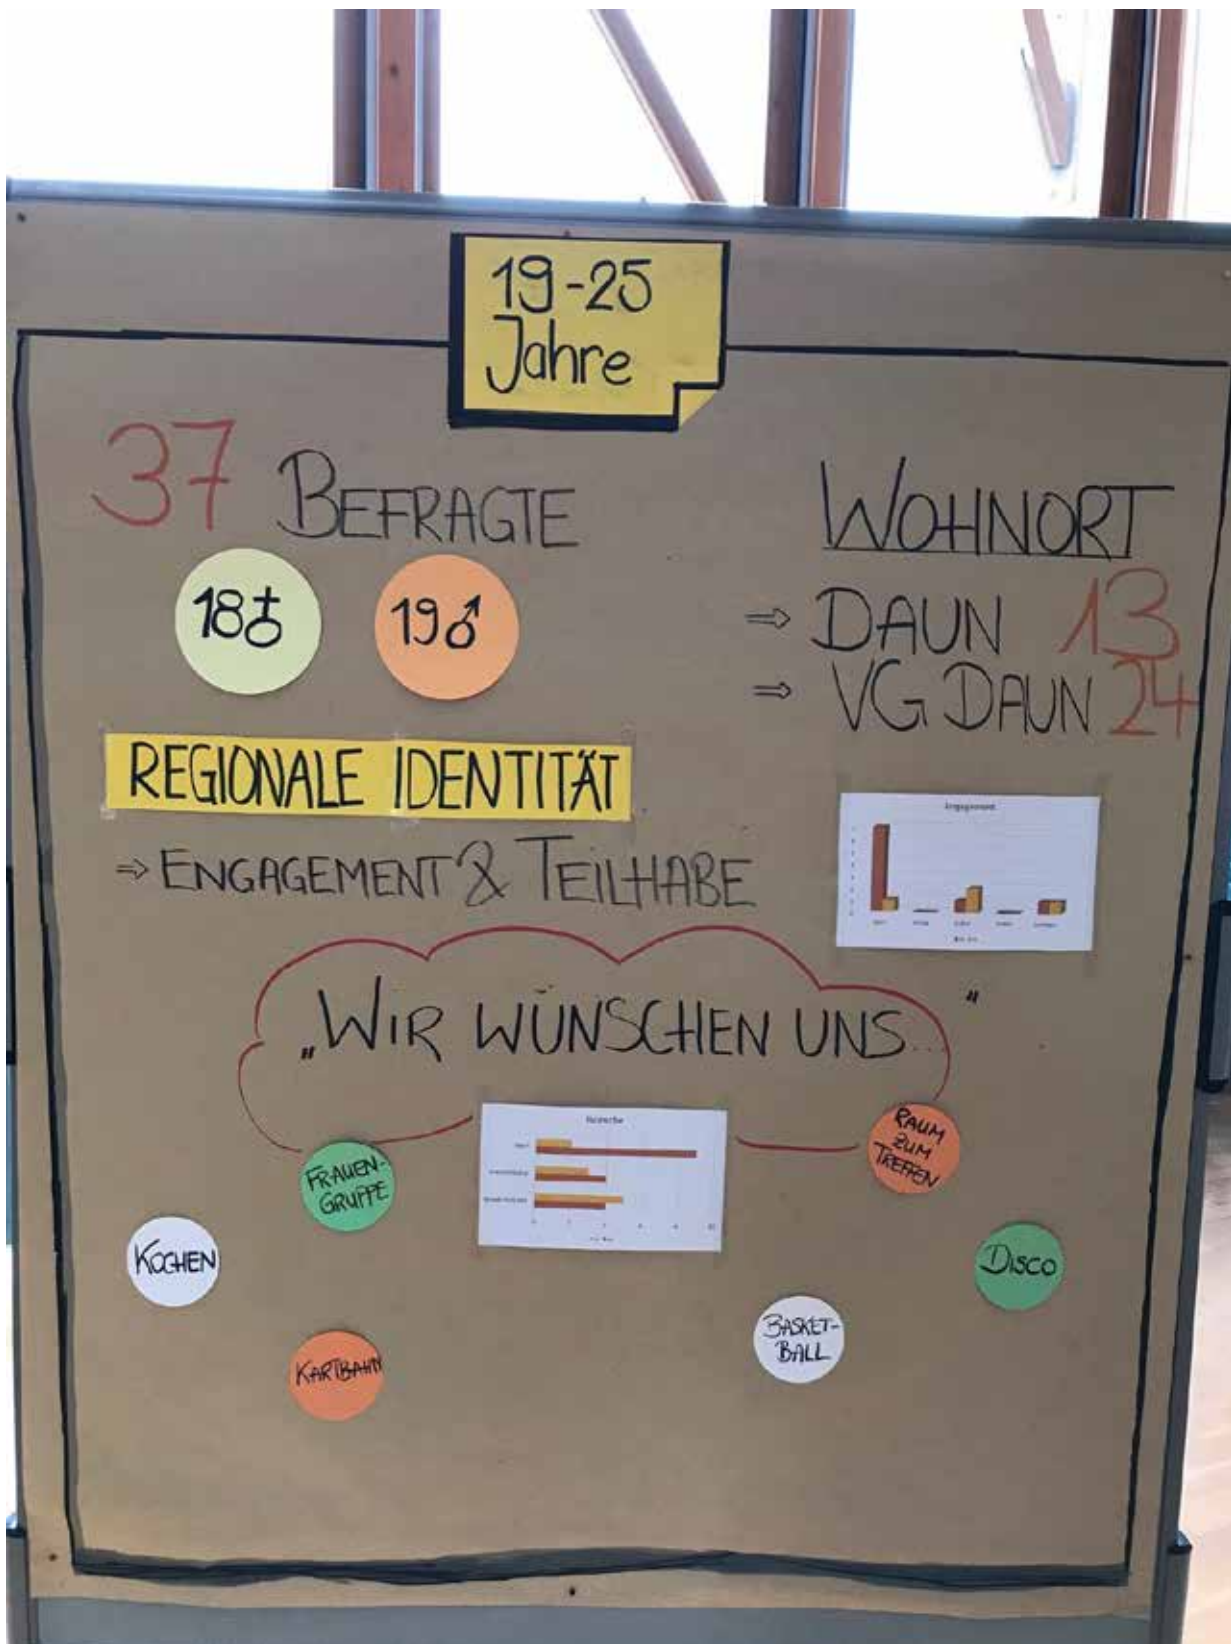 19-25
Jahre
37 BEFRAGTE
18♀ 19♂
WOHNORT
⇒ DAUN 13
⇒ VG DAUN 24
REGIONALE IDENTITÄT
⇒ ENGAGEMENT & TEILHABE
Engagement
„WIR WÜNSCHEN UNS..."
FRAUEN-
GRUPPE
RAUM
ZUM
TREFFEN
KOCHEN
DISCO
KARTBAHN
BASKET-
BALL